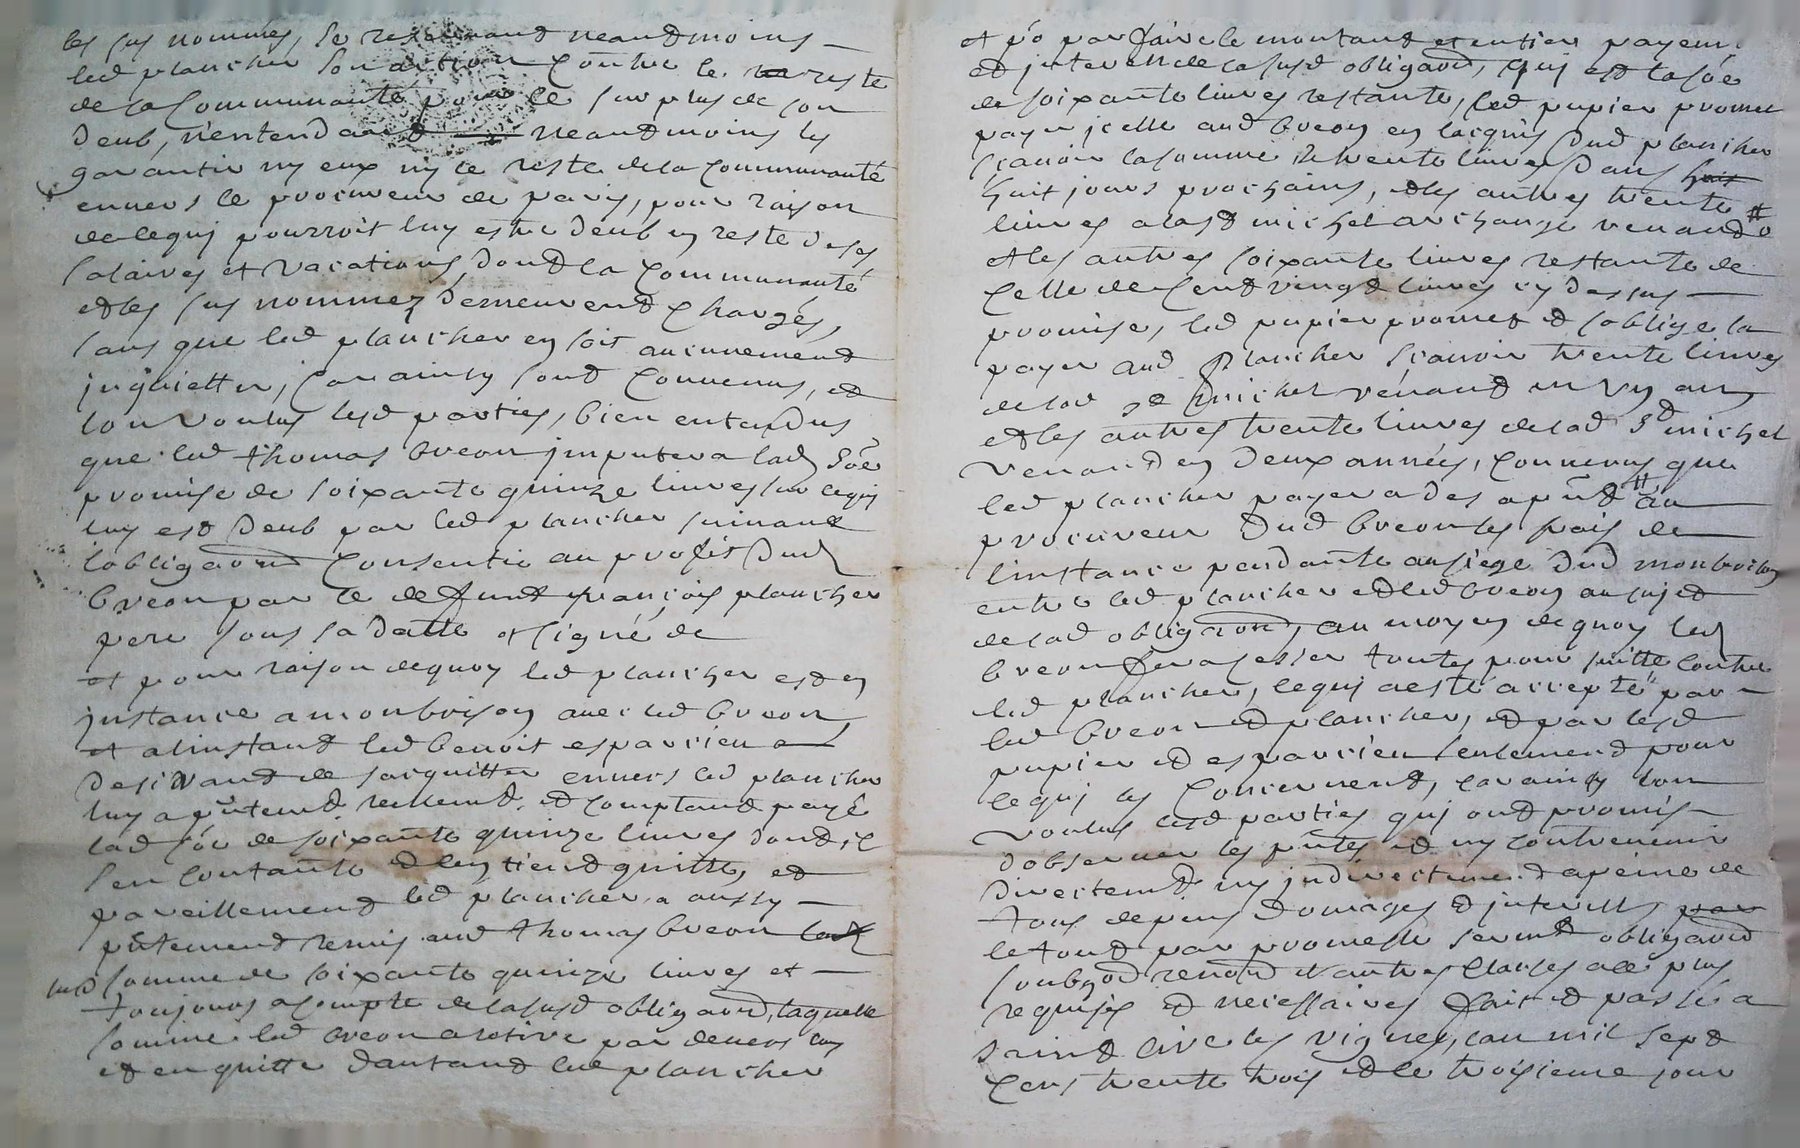 les sus nommés, se reservant neandmoins
led plancher son action contre le reste
de la Communauté pour le surplus de son
deub, n'entendant neandmoins les
garantir ny eux ny le reste de la communauté
envers le procureur de paris, pour raison
de lequi pourroit luy estre deub en reste de ses
salaires et vacations, dond la communauté
et les sus nommez demeurend chargés,
sans que led plancher en soit aucunemend
inquietter, car ainsy sond convenus, et
lon voulus lesd parties, bien entendus
que led thomas breon imputera lad sôe
promise de soixante quinze livres sur cequi
luy est deub par led plancher suivant
lobligaôn consentie au profit dud
breon par le defunt françois plancher
pere sous sa datte et signé de
et pour raison dequoy led plancher est en
instance a monbrison avec led breon
et a linstand led benoit esparcieu
desirand de sacquitter envers led plancher
luy a pntemt reellemt et comptand payé
lad sôe de soixante quinze livres dond il
sen contante et len tiend quitte, et
pareillemend led plancher a aussy
pntemend remis aud thomas breon
lad somme de soixante quinze livres et
toujours a compte de la susd obligaôn, laquelle
somme led breon a retiré par devers luy
et en quitte dautand led plancher
et po parfaire le montand et entier payemt
et interest de la susd obligaôn, qui est la sôe
de soixante livres restante, led papier promet
payer icelle aud breon en lacquis dud plancher
scavoir la somme de trente livres dans
huit jours prochains, et les autres trente
livres a la st michel archange venand
et les autres soixante livres restante de
celle de cend vingt livres cy dessus
promise, led papier promet et soblige la
payer aud plancher scavoir trente livres
de lad st michel venand en un an
et les autres trente livres de lad st michel
venand en deux années, convenus que
led plancher payera des a pnt au
procureur dud breon les frais de
linstance pendante au siege dud monbrison
entre led plancher et led breon au sujet
de lad obligaôn, au moyen dequoy led
breon fera cesser toutes poursuitte contre
led plancher, lequi a esté accepté par
led breon et plancher, et par lesd
papier et esparcieu seulemend pour
lequi les concernend, car ainsy lon
voulus lesd parties qui ond promis
dobserver les pntes et ny contrevenir
directemt ny indirectemend a peine de
tous depens domages et interests
le tout par promesse sermt obligaôn
soubzôn renonôn et autres clauses a ce plus
requises et necessaires fait et passé a
saint cire les vignes, lan mil sept
cens trente trois et le troisieme jour